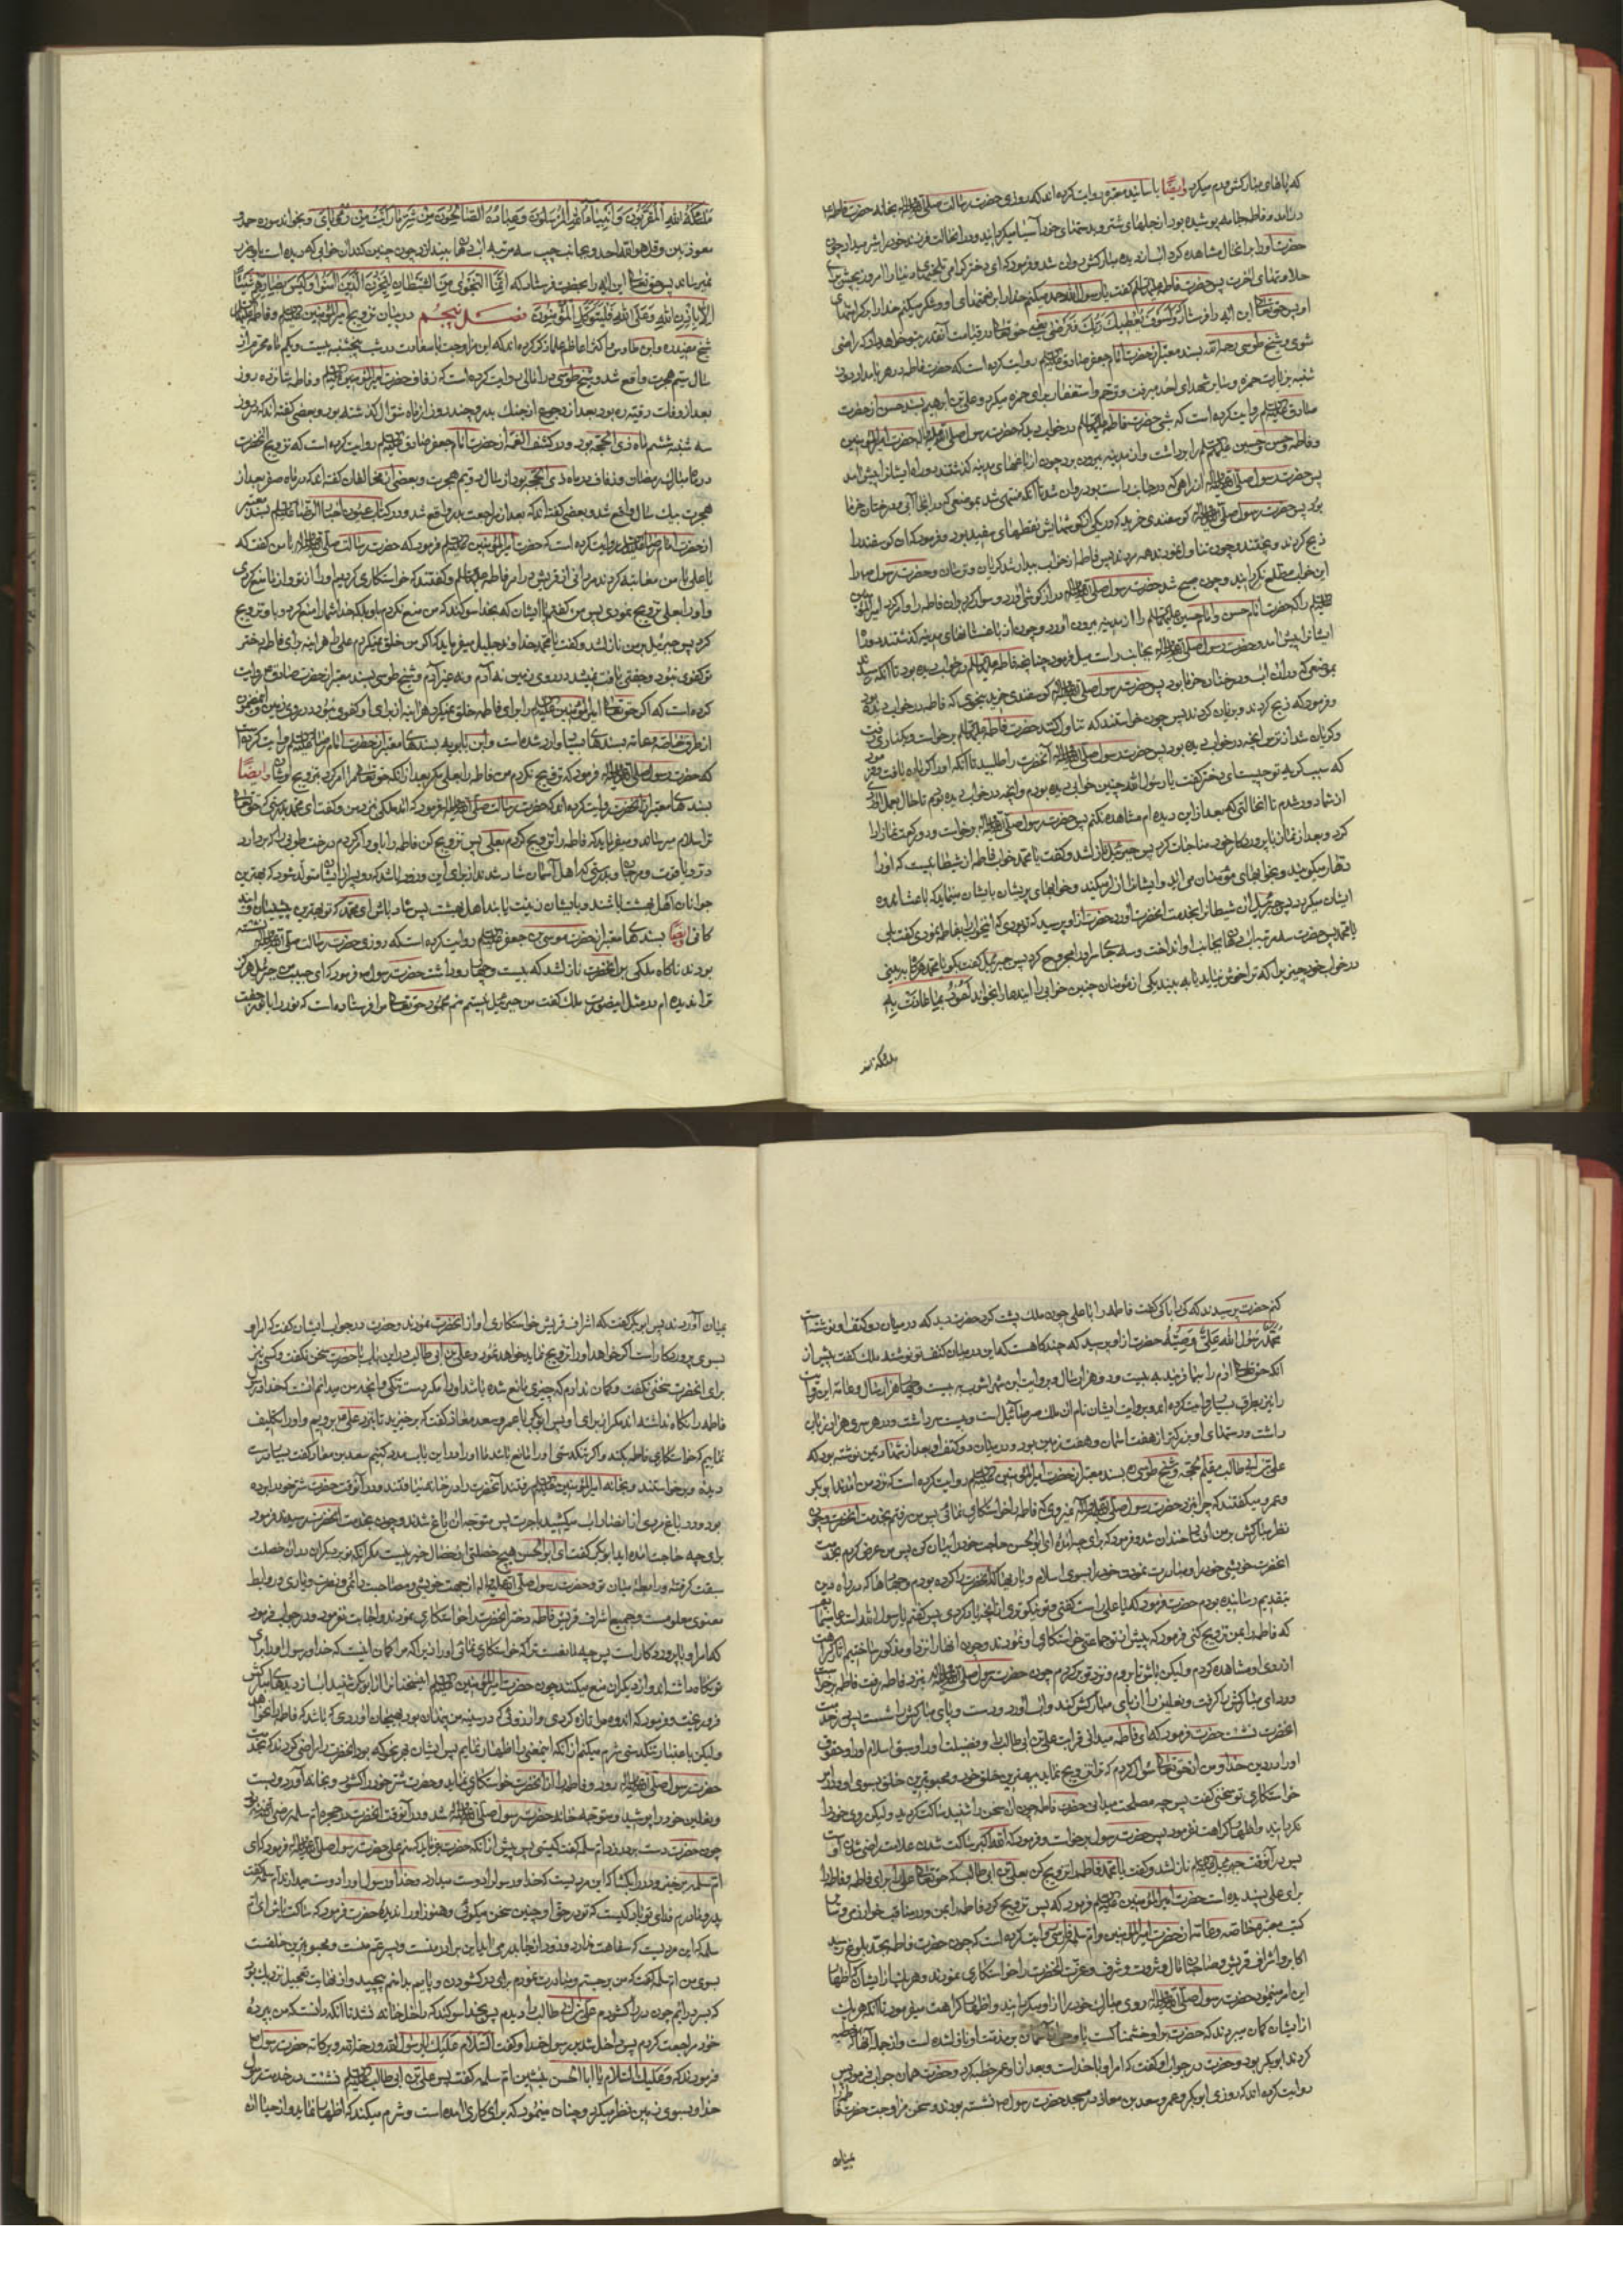 که پاهای مبارکش ورم میکرد وایضًا باسانید معتبره روایت کرده‌اند که روزی حضرت رسالت صلی الله علیه وآله بخانه حضرت فاطمه
درآمد و فاطمه جامه پوشیده بود از جلهای شتر و بدستهای خود آسیا میکردانید و در آنحالت فرزند خود را شیر میداد چون
حضرت او را بر آنحال مشاهده کرد آب از دیده مبارکش روان شد و فرمود که ای دختر کرامی تلخیهای دنیا را امروز بچش برای
حلاوتهای آخرت پس حضرت فاطمه علیها السلام گفت یا رسول الله حمد میکنم خدا را بر نعمتهای او و شکر میکنم خدا را بر کرامتهای
او پس حق تعالی این آیه را فرستاد وَلَسَوْفَ یُعْطِیكَ رَبُّكَ فَتَرْضَىٰ یعنی حق تعالی در قیامت آنقدر بتو خواهد داد که راضی
شوی و شیخ طوسی رحمه الله بسند معتبر از حضرت امام جعفر صادق علیه السلام روایت کرده است که حضرت فاطمه در هر بامداد روز
شنبه بزیارت حمزه و سایر شهدای احد میرفت و ترحم و استغفار برای حمزه میکرد و علی بن ابراهیم بسند حسن از حضرت
صادق علیه السلام روایت کرده است که شبی حضرت فاطمه علیها السلام در خواب دید که حضرت رسول صلی الله علیه وآله با حضرت امیرالمؤمنین
وفاطمه و حسن و حسین علیهم السلام را برداشت و از مدینه بیرون برد چون از باغهای مدینه گذشتند دو راه ایشانرا پیش آمد
پس حضرت رسول صلی الله علیه وآله از راهی که در جانب راست بود روان شد تا آنکه منتهی شد بموضعی که در آنجا آبی و درختان خرما
بود پس حضرت رسول صلی الله علیه وآله گوسفندی خرید که در یکی از گوشهایش نقطهای سفید بود و فرمود که آن گوسفند را
ذبح کردند و پختند و چون تناول نمودند همه مردند پس فاطمه از خواب بیدار شد گریان و ترسان و حضرت رسول ص را
این خواب مطلع نکردانید و چون صبح شد حضرت رسول صلی الله علیه وآله درازکوشی آورد و سوار کرد بر آن فاطمه را و امر کرد امیرالمؤمنین
علیه السلام را که حضرت امام حسن و امام حسین علیهما السلام را از مدینه بیرون آورد و چون از باغستانهای مدینه گذشتند دو راه
ایشانرا پیش آمد و حضرت رسول صلی الله علیه وآله بجانب راست میل فرمود چنانچه فاطمه علیها السلام در خواب دیده بود تا آنکه رسید
بموضعی که در آن آب و درختان خرما بود پس حضرت رسول صلی الله علیه وآله گوسفندی خرید بنحوی که فاطمه در خواب دیده بود
و فرمود که ذبح کردند و بریان کردند پس چون خواستند که تناول کنند حضرت فاطمه علیها السلام برخواست و بکناری رفت
و گریان شد از ترس آنچه در خواب دیده بود پس حضرت رسول صلی الله علیه وآله آنحضرت را طلبید تا آنکه او را گریان یافت و فرمود
که سبب گریه تو چیست ای دختر گفت یا رسول الله چنین خوابی دیده بودم و آنچه در خواب دیده بودم تا حال بعمل آوردی
از شما دور شدم تا آنحالتی که بعد از این دیده‌ام مشاهده نکنم پس حضرت رسول صلی الله علیه وآله برخواست و دو رکعت نماز ادا
کرد و بعد از نماز با پروردکار خود مناجات کرد پس جبرئیل نازل شد و گفت یا محمد خواب فاطمه از شیطانیست که او را
دهار میگویند و بخوابهای مؤمنان می‌آید و ایشانرا آزار میکند و خوابهای پریشان بایشان مینماید که باعث اندوه
ایشان میکردد پس جبرئیل آن شیطانرا بخدمت آنحضرت آورد حضرت از او پرسید که تو بودی که این خوابرا بفاطمه نمودی گفت بلی
یا محمد پس حضرت سه مرتبه آب دهان بجانب او انداخت و سه جای سر او را مجروح کرد پس جبرئیل گفت بگو یا محمد هرگاه ببینی
در خواب خود چیزی را که ترا خوش نیاید یا ببیند یکی از مؤمنان چنین خوابی را اینها را بخواند أَعُوذُ بِمَا عَاذَتْ بِهِ
ملائکة الله
مَلَائِكَةُ اللهِ الْمُقَرَّبُونَ وَأَنْبِیَاءُ اللهِ الْمُرْسَلُونَ وَعِبَادُهُ الصَّالِحُونَ مِنْ شَرِّ مَا رَأَیْتُ مِنْ رُؤْیَایَ و بخواند سوره حمد و
معوذتین و قل هو الله احد و بجانب چپ سه مرتبه آب دهان بیندازد چون چنین کند آن خوابی که دیده است باو ضرر
نمیرساند پس حق تعالی این آیه را بحضرت فرستاد که إِنَّمَا النَّجْوَىٰ مِنَ الشَّیْطَانِ لِیَحْزُنَ الَّذِینَ آمَنُوا وَلَیْسَ بِضَارِّهِمْ شَیْئًا
إِلَّا بِإِذْنِ اللهِ وَعَلَى اللهِ فَلْیَتَوَكَّلِ الْمُؤْمِنُونَ فصل پنجم در بیان تزویج امیرالمؤمنین علیه السلام و فاطمه علیها السلام
شیخ مفید ره و ابن طاوس و اکثر اعاظم علما ذکر کرده‌اند که این مزاوجت با سعادت در شب پنجشنبه بیست و یکم ماه محرم از
سال سیم هجرت واقع شد و شیخ طوسی در امالی روایت کرده است که زفاف حضرت امیرالمؤمنین علیه السلام و فاطمه شانزده روز
بعد از وفات رقیه ره بود بعد از رجوع از جنك بدر و چند روز از ماه شوال گذشته بود و بعضی گفته‌اند که در روز
سه شنبه ششم ماه ذی الحجه بود و در کشف الغمه از حضرت امام جعفر صادق علیه السلام روایت کرده است که تزویج آنحضرت
در ماه مبارك رمضان و زفاف در ماه ذی الحجه بود از سال دویم هجرت و بعضی از مخالفان گفته‌اند که در ماه صفر بعد از
هجرت بیك سال واقع شد و بعضی گفته‌اند که بعد از مراجعت بدر واقع شد و در کتاب عیون اخبار الرضا علیه السلام بسند معتبر
از حضرت امام رضا علیه السلام روایت کرده است که حضرت امیرالمؤمنین علیه السلام فرمود که حضرت رسالت صلی الله علیه وآله با من گفت که
یا علی با من معاتبه کردند مردانی از قریش در امر فاطمه علیها السلام و گفتند که خواستکاری کردیم او را از تو و از ما منع کردی
و او را بعلی تزویج نمودی پس من گفتم با ایشان که بخدا سوگند که من منع نکردم او را بلکه خدا شما را منع کرد و باو تزویج
کرد پس جبرئیل بر من نازل شد و گفت یا محمد خداوند جلیل میفرماید که اگر من خلق نمیکردم علی را هرآینه برای فاطمه دختر
تو کفوی نبود و جفتی یافت نمیشد در روی زمین نه آدم و نه غیر آدم و شیخ طوسی بسند معتبر از حضرت صادق ع روایت
کرده است که اگر حق تعالی امیرالمؤمنین علیه السلام را برای فاطمه خلق نمیکرد هرآینه از برای او کفوی نبود در روی زمین و این مضمون
از طرق خاصه و عامه بسندهای بسیار وارد شده است و ابن بابویه بسندهای معتبر از حضرت امام رضا علیه السلام روایت کرده است
که حضرت رسول صلی الله علیه وآله فرمود که تزویج نکردم من فاطمه را بعلی مگر بعد از آنکه حق تعالی مرا امر کرد بتزویج ایشان وایضًا
بسندهای معتبر از آنحضرت روایت کرده‌اند که حضرت رسالت صلی الله علیه وآله فرمود که آمد ملکی نزد من و گفت ای محمد بدرستیکه حق تعالی
ترا سلام میرساند و میفرماید که فاطمه را تزویج کردم بعلی پس تزویج کن فاطمه را باو و امر کردم درخت طوبی را که بردارد
در و یاقوت و مرجان و بدرستی که اهل آسمان شاد شدند از برای این و زود باشد که دو پسر از ایشان متولد شود که بهترین
جوانان اهل بهشت باشند و بایشان زینت یابند اهل بهشت پس شاد باش ای محمد که تو بهترین پیشینیان و آیندگان
کافی ایضًا بسندهای معتبر از حضرت موسی بن جعفر علیه السلام روایت کرده است که روزی حضرت رسالت صلی الله علیه وآله نشسته
بودند ناگاه ملکی بر آنحضرت نازل شد که بیست و چهار رو داشت حضرت رسول ص فرمود که ای حبیب من جبرئیل هرگز
ترا ندیده‌ام در مثل این صورت ملك گفت من جبرئیل نیستم منم محمود حق تعالی مرا فرستاده است که نور را با نور جفت
کنم حضرت پرسیدند که کی را با کی گفت فاطمه را با علی چون ملك پشت کرد حضرت دید که در میان دو کتف او نوشته است
مُحَمَّدٌ رَسُولُ الله عَلِیٌّ وَصِیُّهُ حضرت از او پرسید که چند گاهست که این در میان کتف تو نوشته‌اند ملك گفت پیش از
آنکه حق تعالی آدم را بیافریند به بیست و دو هزار سال و بروایت ابن شهر آشوب به بیست و چهار هزار سال و عامه این روایت
را نیز بطرق بسیار روایت کرده‌اند و بروایت ایشان نام آن ملك صرصائیل است و بیست سر داشت و در هر سری هزار زبان
داشت و دستهای او بزرکتر از هفت آسمان و هفت زمین بود و در میان دو کتف او بعد از شهادتین نوشته بود که
علی بن ابی طالب مقیم الحجه و شیخ طوسی ره بسند معتبر از حضرت امیرالمؤمنین علیه السلام روایت کرده است که نزد من آمدند ابوبکر
و عمر و گفتند که چرا نزد حضرت رسول صلی الله علیه وآله نمیروی که فاطمه را خواستکاری نمائی پس من رفتم بخدمت آنحضرت و چون
نظر مبارکش بر من افتاد خندان شد و فرمود که برای چه آمدهٔ ای ابوالحسن حاجت خود را بیان کن پس من عرض کردم بخدمت
آنحضرت خویشی خود را و مبادرت نمودن خود را بسوی اسلام و یاریها که آنحضرت را کرده بودم و جهادها که در راه دین
بتقدیم رسانیده بودم حضرت فرمود که یا علی راست گفتی و تو نیکوتری از آنچه یاد کردی پس گفتم یا رسول الله
که فاطمه را بمن تزویج کنی فرمود که پیش از تو جماعتی خواستکاری او نمودند و چون اظهار نزد او مذکور ساختیم آثار کراهت
از روی او مشاهده کردم و لیکن باش تا بروم و نزد تو برکردم چون حضرت رسول صلی الله علیه وآله بنزد فاطمه رفت فاطمه برخواست
و ردای مبارکش را گرفت و نعلین را از پای مبارکش کند و آب آورد و دست و پای مبارکش را شست پس در خدمت
آنحضرت نشست حضرت فرمود که ای فاطمه میدانی قرابت علی بن ابی طالب را و فضیلت او را و سبق اسلام او را و حقوق
او را در دین خدا و من از حق تعالی سؤال کردم که ترا تزویج نماید ببهترین خلق خود و محبوبترین خلق بسوی او و در امر
خواستکاری تو سخنی گفت پس چه مصلحت میدانی حضرت فاطمه چون آن سخن را شنید ساکت کردید و لیکن روی خود را
نکردانید و اظهار کراهت نفرمود پس حضرت رسول برخواست و فرمود که الله اکبر ساکت شدن علامت راضی شدن اوست
پس در آنوقت جبرئیل علیه السلام نازل شد و گفت یا محمد فاطمه را تزویج کن بعلی بن ابی طالب که حق تعالی علی را برای فاطمه و فاطمه را
برای علی پسندیده است حضرت امیرالمؤمنین علیه السلام فرمود که پس تزویج کرد فاطمه را بمن و در مناقب خوارزمی و سایر
کتب معتبره خاصه و عامه از حضرت امیرالمؤمنین و ام سلمه و سلمان فارسی روایت کرده است که چون حضرت فاطمه بحد بلوغ رسید
اکابر و اشراف قریش و صاحبان مال و ثروت و شرف و عزت آنحضرت را خواستکاری نمودند و هر یك از ایشان که اظهار
این امر مینمود حضرت رسول صلی الله علیه وآله روی مبارك خود را از او میکردانید و اظهار کراهت میفرمود تا آنکه هر یك
از ایشان گمان میبردند که حضرت بر او خشمناکست یا وحی از آسمان بر مذمت او نازل شده است و از جمله آنها که خطبه
کردند ابوبکر بود و حضرت در جواب او گفت که امر او با خداست و بعد از او عمر خطبه کرد و حضرت همان جواب فرمود پس
روایت کرده‌اند که روزی ابوبکر و عمر و سعد بن معاذ در مسجد حضرت رسول ص نشسته بودند و سخن مزاوجت حضرت فاطمه را
بمیان
بمیان آوردند پس ابوبکر گفت که اشراف قریش خواستکاری او از آنحضرت نمودند و حضرت در جواب ایشان گفت که امر او
بسوی پروردکار است اگر خواهد او را تزویج نماید خواهد نمود و علی بن ابی طالب در این باب با حضرت سخن نگفت و کسی نیز
برای آنحضرت سخنی نگفت و گمان ندارم که چیزی مانع شده باشد او را مگر دست تنکی و آنچه من میدانم آنست که خدا و رسول
فاطمه را نگاه نداشته‌اند مگر از برای او پس ابوبکر با عمر و سعد معاذ گفت که برخیزید تا بنزد علی برویم و او را تکلیف
نمائیم که خواستکاری فاطمه بکند و اگر تنکدستی او را مانع باشد ما او را در این باب مدد کنیم سعد بن معاذ گفت بسیار درست
دیدهٔ و برخواستند و بخانه امیرالمؤمنین علیه السلام رفتند آنحضرت را در خانه نیافتند و در آنوقت حضرت شتر خود را برده
بود و در باغ مردی از انصار آب میکشید باجرت پس متوجه آن باغ شدند و چون بخدمت آنحضرت رسیدند فرمود
برای چه حاجت آمده‌اید ابوبکر گفت ای ابوالحسن هیچ خصلتی از خصال خیر نیست مگر آنکه تو بر دیگران در آن خصلت
سبقت گرفتهٔ و رابطهٔ میان تو و حضرت رسول صلی الله علیه وآله از جهت خویشی و مصاحبت دائمی و نصرت و یاری و روابط
معنوی معلومست و جمیع اشراف قریش فاطمه دختر آنحضرت را خواستکاری نمودند و اجابت نفرمود و در جواب فرمود
که امر او با پروردکار است پس چه مانعست ترا که خواستکاری نمائی او را زیرا که مرا گمان آنست که خدا و رسول او را برای
تو نگاه داشته‌اند و از دیگران منع میکنند چون حضرت امیرالمؤمنین علیه السلام این سخنانرا از ابوبکر شنید آب از دیدهای مبارکش
فرو ریخت و فرمود که اندوه مرا تازه کردی و آرزوئی که در سینه من پنهان بود بهیجان آوردی که باشد که فاطمه را نخواهد
ولیکن باعتبار تنکدستی شرم میکنم از آنکه این معنی را اظهار نمایم پس ایشان بهر نحو که بود آنحضرت را راضی کردند که بخدمت
حضرت رسول صلی الله علیه وآله رود و فاطمه را از آنحضرت خواستکاری نماید و حضرت شتر خود را گشود و بخانه آورد و بست
و نعلین خود را پوشید و متوجه خانه حضرت رسول صلی الله علیه وآله شد و در آنوقت آنحضرت در حجره ام سلمه رضی الله عنها بود
چون حضرت دست بر در زد ام سلمه گفت کیستی پس پیش از آنکه حضرت بفرماید که منم علی حضرت رسول صلی الله علیه وآله فرمود که ای
ام سلمه برخیز و در را بگشا که این مردیست که خدا و رسول او را دوست میدارند و خدا و رسول او را دوست میدارد ام سلمه گفت
پدر و مادرم فدای تو باد کیست که تو در حق او چنین سخن میگوئی و هنوز او را ندیدهٔ حضرت فرمود که ساکت باش ای ام
سلمه که این مردیست که سفاهت ندارد و زود از جا بدر نمی‌آید این برادر منست و پسر عم منست و محبوبترین خلقست
بسوی من ام سلمه گفت که من برجستم و مبادرت نمودم برای در گشودن و پایم بدامنم پیچید و از غایت تعجیل نزدیك بود
که بسر درآیم چون در را گشودم علی بن ابی طالب را دیدم پس بخدا سوگند که داخل خانه نشد تا آنکه دانست که من بپردهٔ
خود مراجعت کردم پس داخل شد بر رسول خدا و گفت السَّلَام عَلَیْكَ یا رسول الله و رحمة الله و برکاته حضرت رسول ص
فرمودند که وَعَلَیْكَ السَّلَام یا ابا الحسن بنشین ام سلمه گفت پس علی بن ابی طالب علیه السلام نشست در خدمت رسول
خدا و بسوی زمین نظر میکرد و چنان مینمود که برای کاری آمده است و شرم میکند که اظهار نماید و از حیا آن